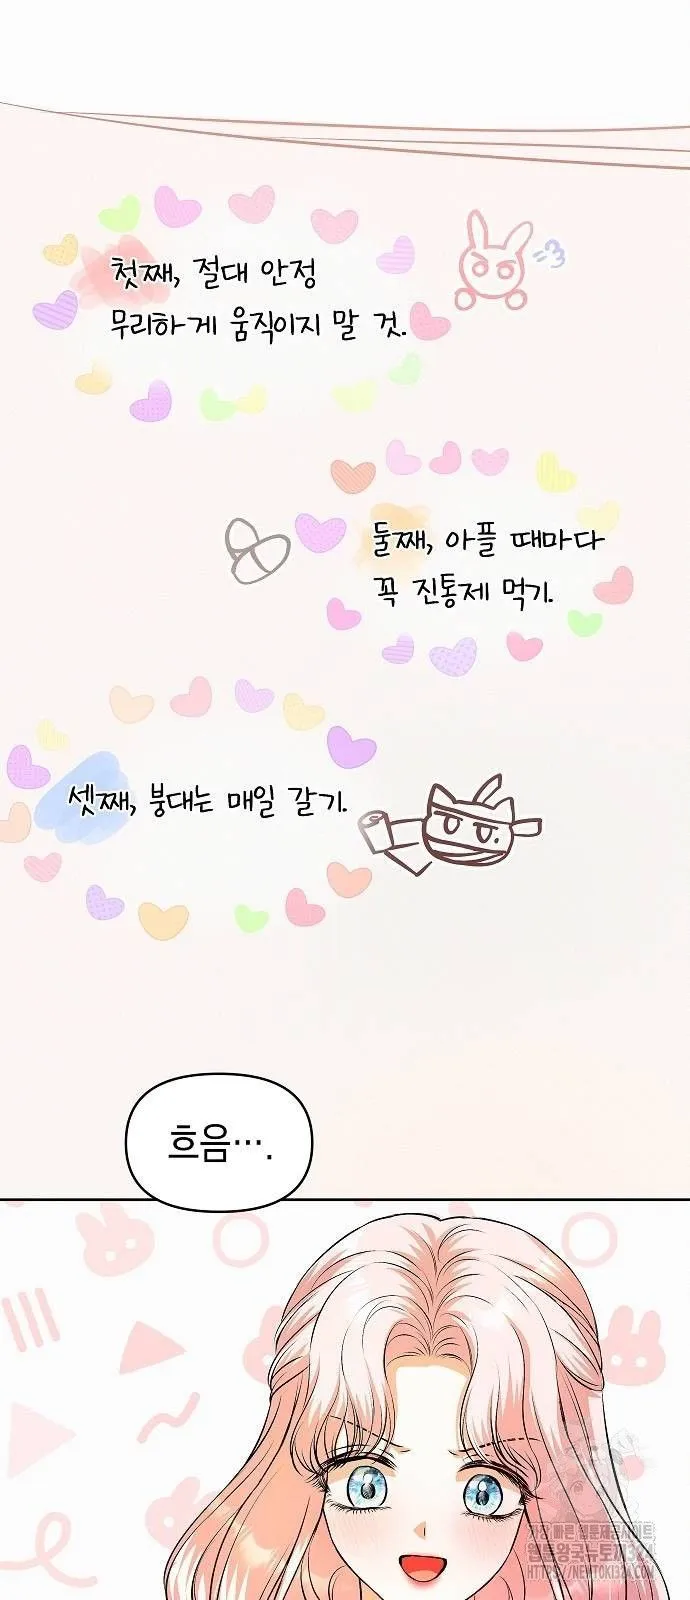 첫째, 절대 안정
무리하게 움직이지 말 것.
둘째, 아플 때마다
꼭 진통제 먹기.
셋째, 붕대는 매일 갈기.
흐음….
가장 빠른 웹툰제공사이트
웹툰왕국뉴토끼
HTTPS://NEWTOKI.COM